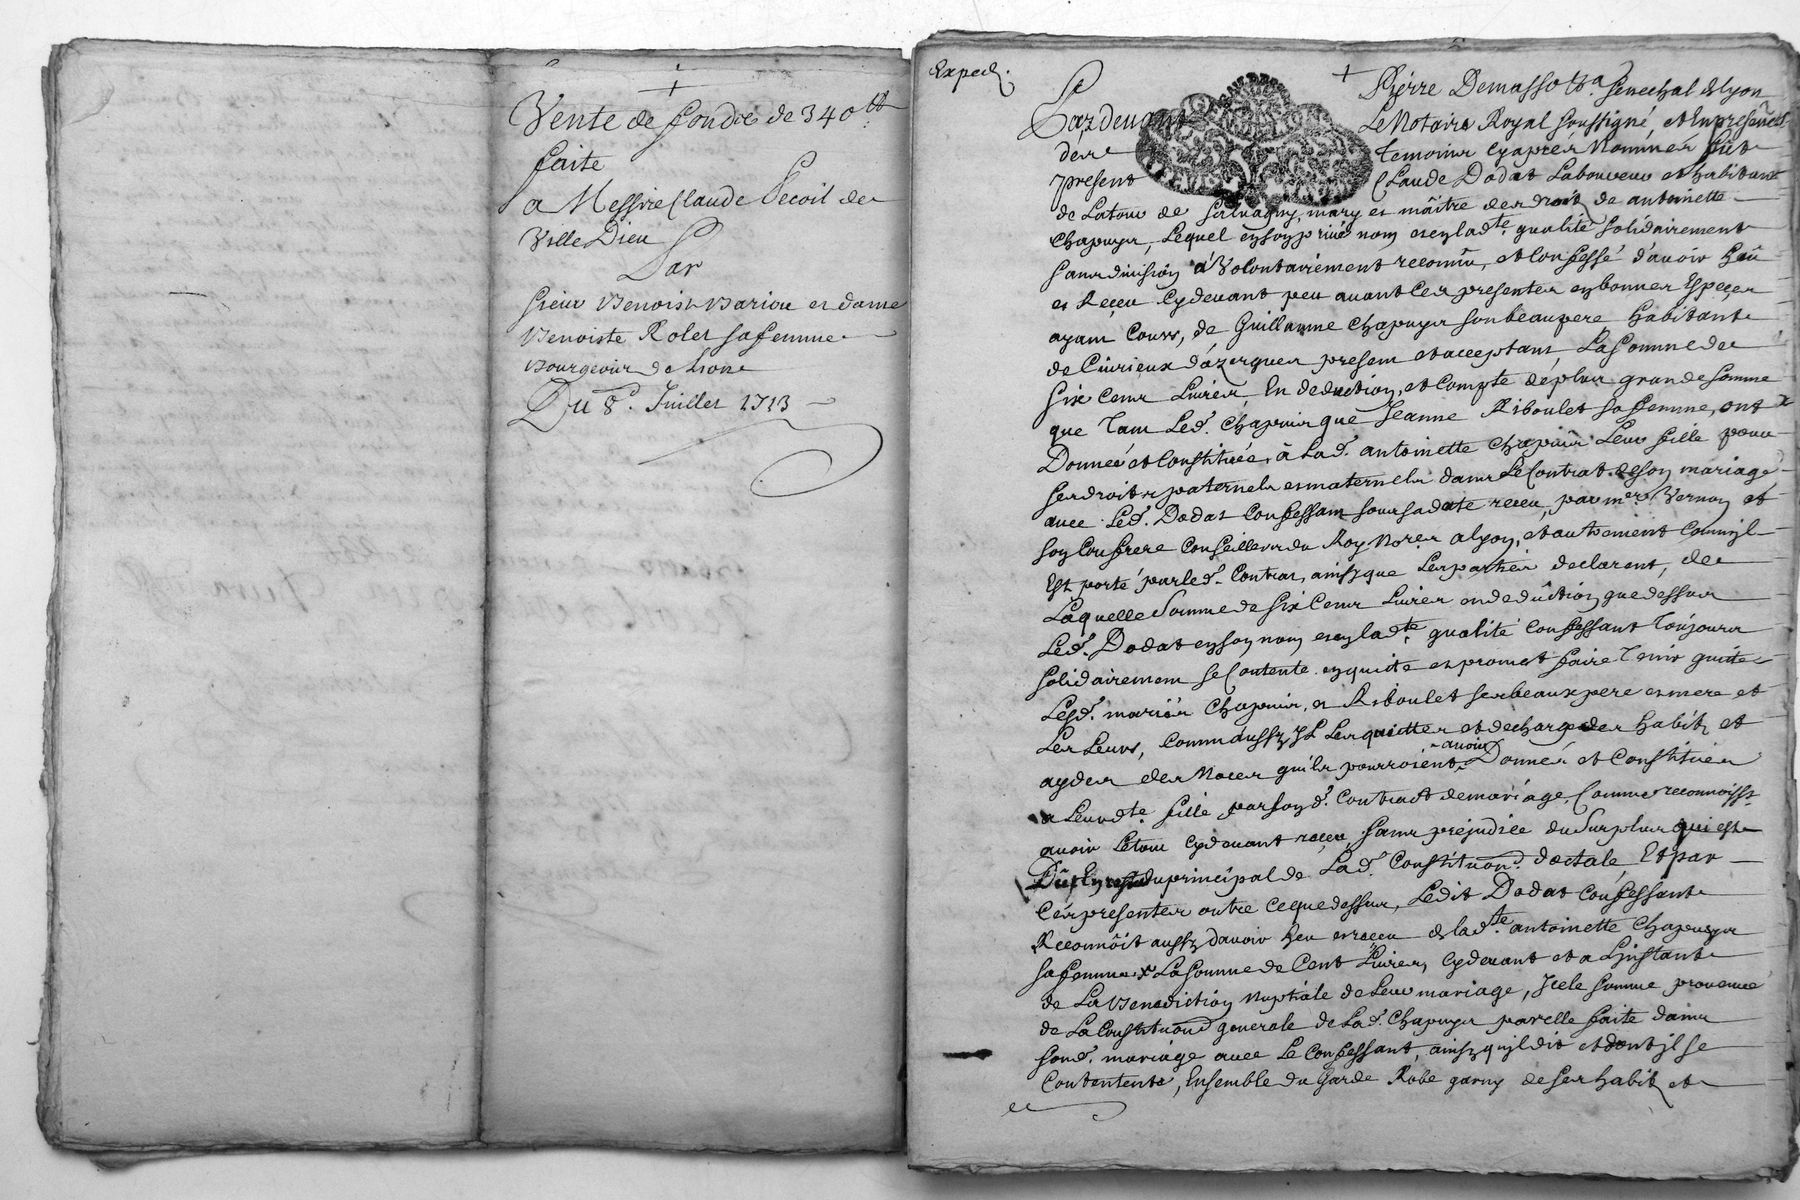 +
Vente de fondz de 340 ₶
faite
a Messire Claude Pecoil de
Ville Dieu
Par
sieur Benoist Bariou et dame
Benoiste Rolet sa femme
Bourgeois de Lion
Du 8e. Juillet 1713
Exped.
+ Pierre Demasso sa. senechal de lyon
Pardevant Le Notaire Royal soussigné, et En presence
des temoins cy apres Nommés fut
present Claude Dodat Laboureur et habitant
de Latour de Salvagny, mary et maître des droits de antoinette
Chapuys, Lequel en son privé nom et en lad.te qualité solidairement
sans division à Volontairement reconnu, et Confessé d'avoir heu
et Receu Cy devant peu avant Ces presentes en bonnes Especes
ayant Cours, de Guillaume Chapuys son beaupere habitant
de Civrieux d'azergues present et acceptant, La somme de
six Cens Livres En deduction, et Compte de plus grande somme
que Tant Led. Chapuis que Jeanne Riboulet sa femme, ont
Donnée et Constituée, à Lad. antoinette Chapuis Leur fille pour
ses droits paternels et maternels dans Le Contrat de son mariage
avec Led. Dodat Confessant sous sa datte receu, par me. Vernon et
son Confrere Conseillers du Roy No.res a lyon, et autrement Comm'il
Est porté par led. Contrat, ainsy que Les parties declarent, de
Laquelle somme de six Cens Livres en deduction que dessus
Led. Dodat en son nom et en lad.te qualité Confessant Toujours
solidairement se Contente en quitte et promet faire Tenir quitte
Lesd. mariés Chapuis, et Riboulet ses beaux pere et mere et
Les Leurs, Comm'aussy Il Les quitte et decharge des habitz et
aydes des Noces qu'ils pourroient avoir Donnés et Constitués
a Leurd.te fille par son d. Contract de mariage, Comme reconnoiss.t
avoir Letout Cy devant receu sans prejudice du Surplus qui est
Dû En reste du principal de Lad. Constituon. doctale, Et par
Ces presentes outre ce que dessus, Ledit Dodat Confessant
Reconnoit aussy d'avoir heu et receu de lad.te antoinette Chapuys
sa femme La somme de Cent Livres, cy devant et a L'instant
de La Benediction Nuptiale de Leur mariage, Icele somme provenue
de La Constituon. generale de Lad. Chapuys par elle faite dans
sond. mariage avec Le Confessant, ainsy qu'il dit et dont il se
Contente, Ensemble du Garde Robe garny de ses habitz et